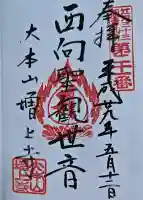 奉拝
平成廿九年五月十二日
西向聖観世音
大本山増上寺